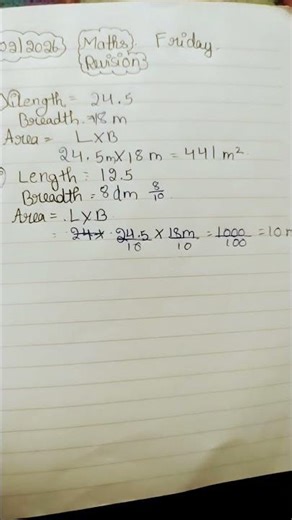 02/2026 Maths Friday.
Revision
i) Length = 24.5
Breadth = 18 m
Area = L×B
24.5m × 18 m = 441 m²
Length = 12.5
Breadth = 8 dm 8/10
Area = L×B
= 24.5/10 × 18m/10 = 1000/100 = 10 m